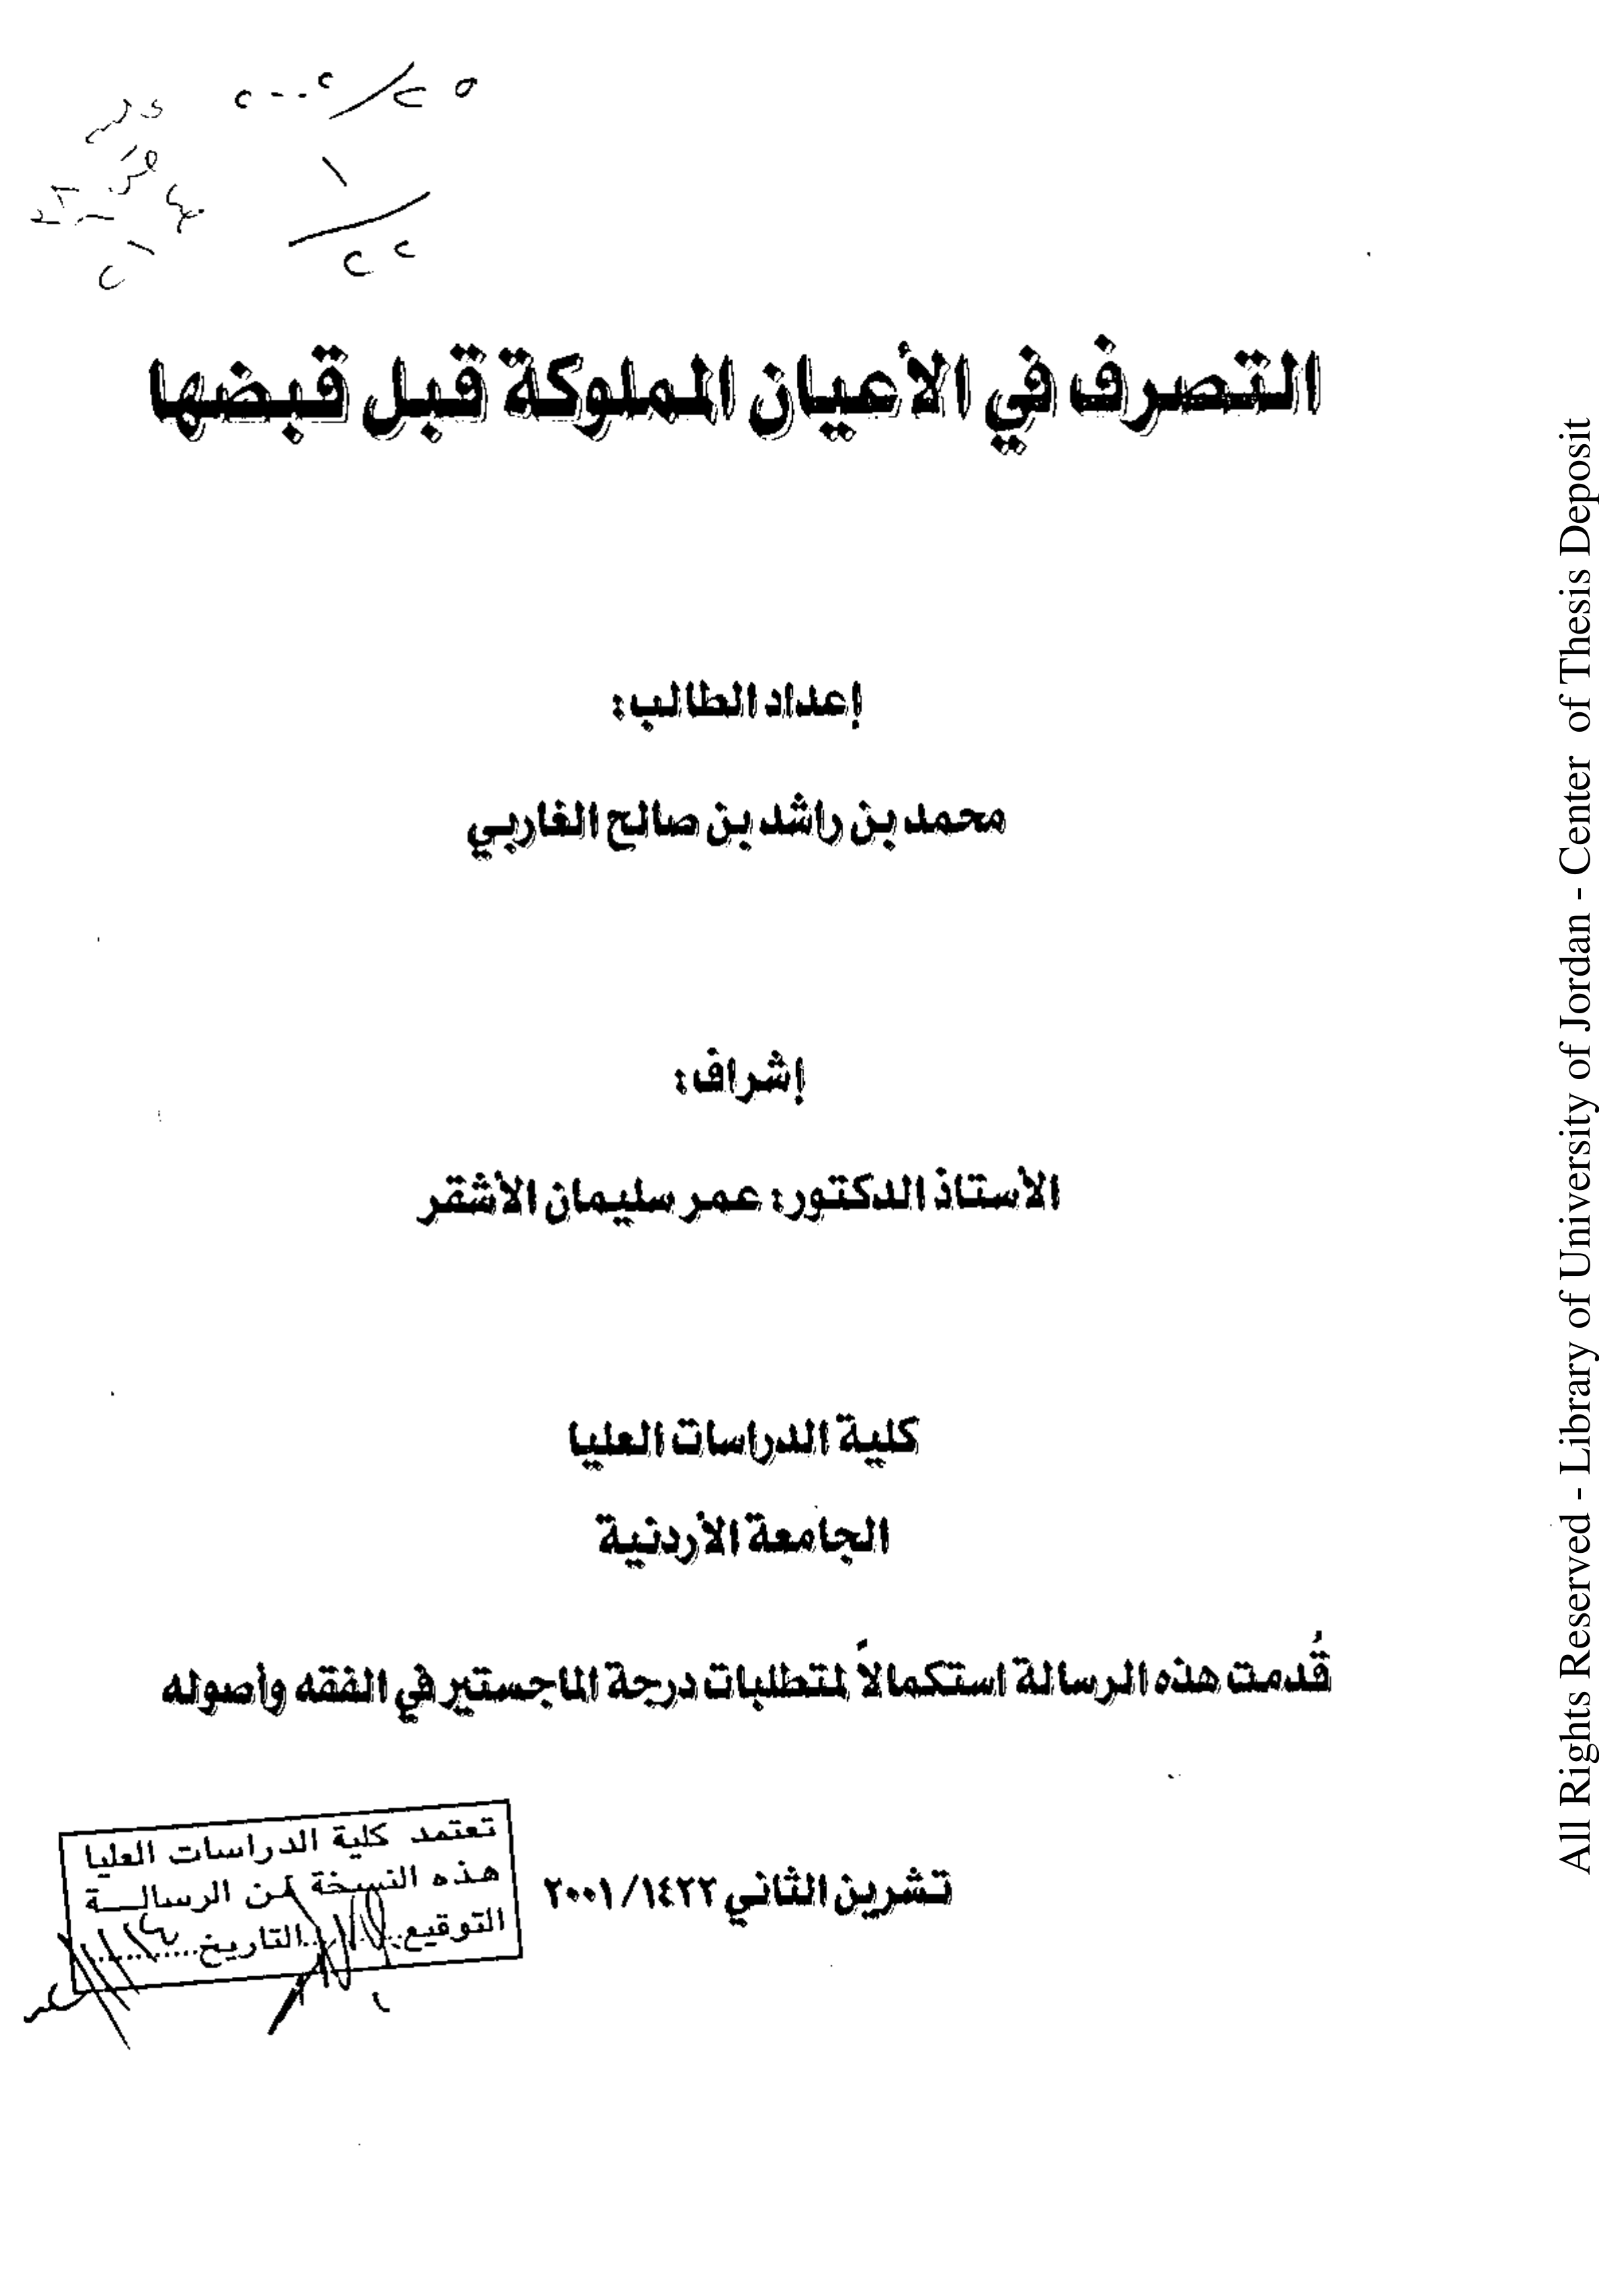 التصرف في الأعيان المملوكة قبل قبضها
إعداد الطالب:
محمد بن راشد بن صالح الغاربي
إشراف:
الأستاذ الدكتور: عمر سليمان الأشقر
كلية الدراسات العليا
الجامعة الأردنية
قُدمت هذه الرسالة استكمالاً لمتطلبات درجة الماجستير في الفقه وأصوله
تشرين الثاني ١٤٢٢/٢٠٠١
تعتمد كلية الدراسات العليا
هذه النسخة من الرسالــة
التوقيع.......التاريخ...........
All Rights Reserved - Library of University of Jordan - Center of Thesis Deposit